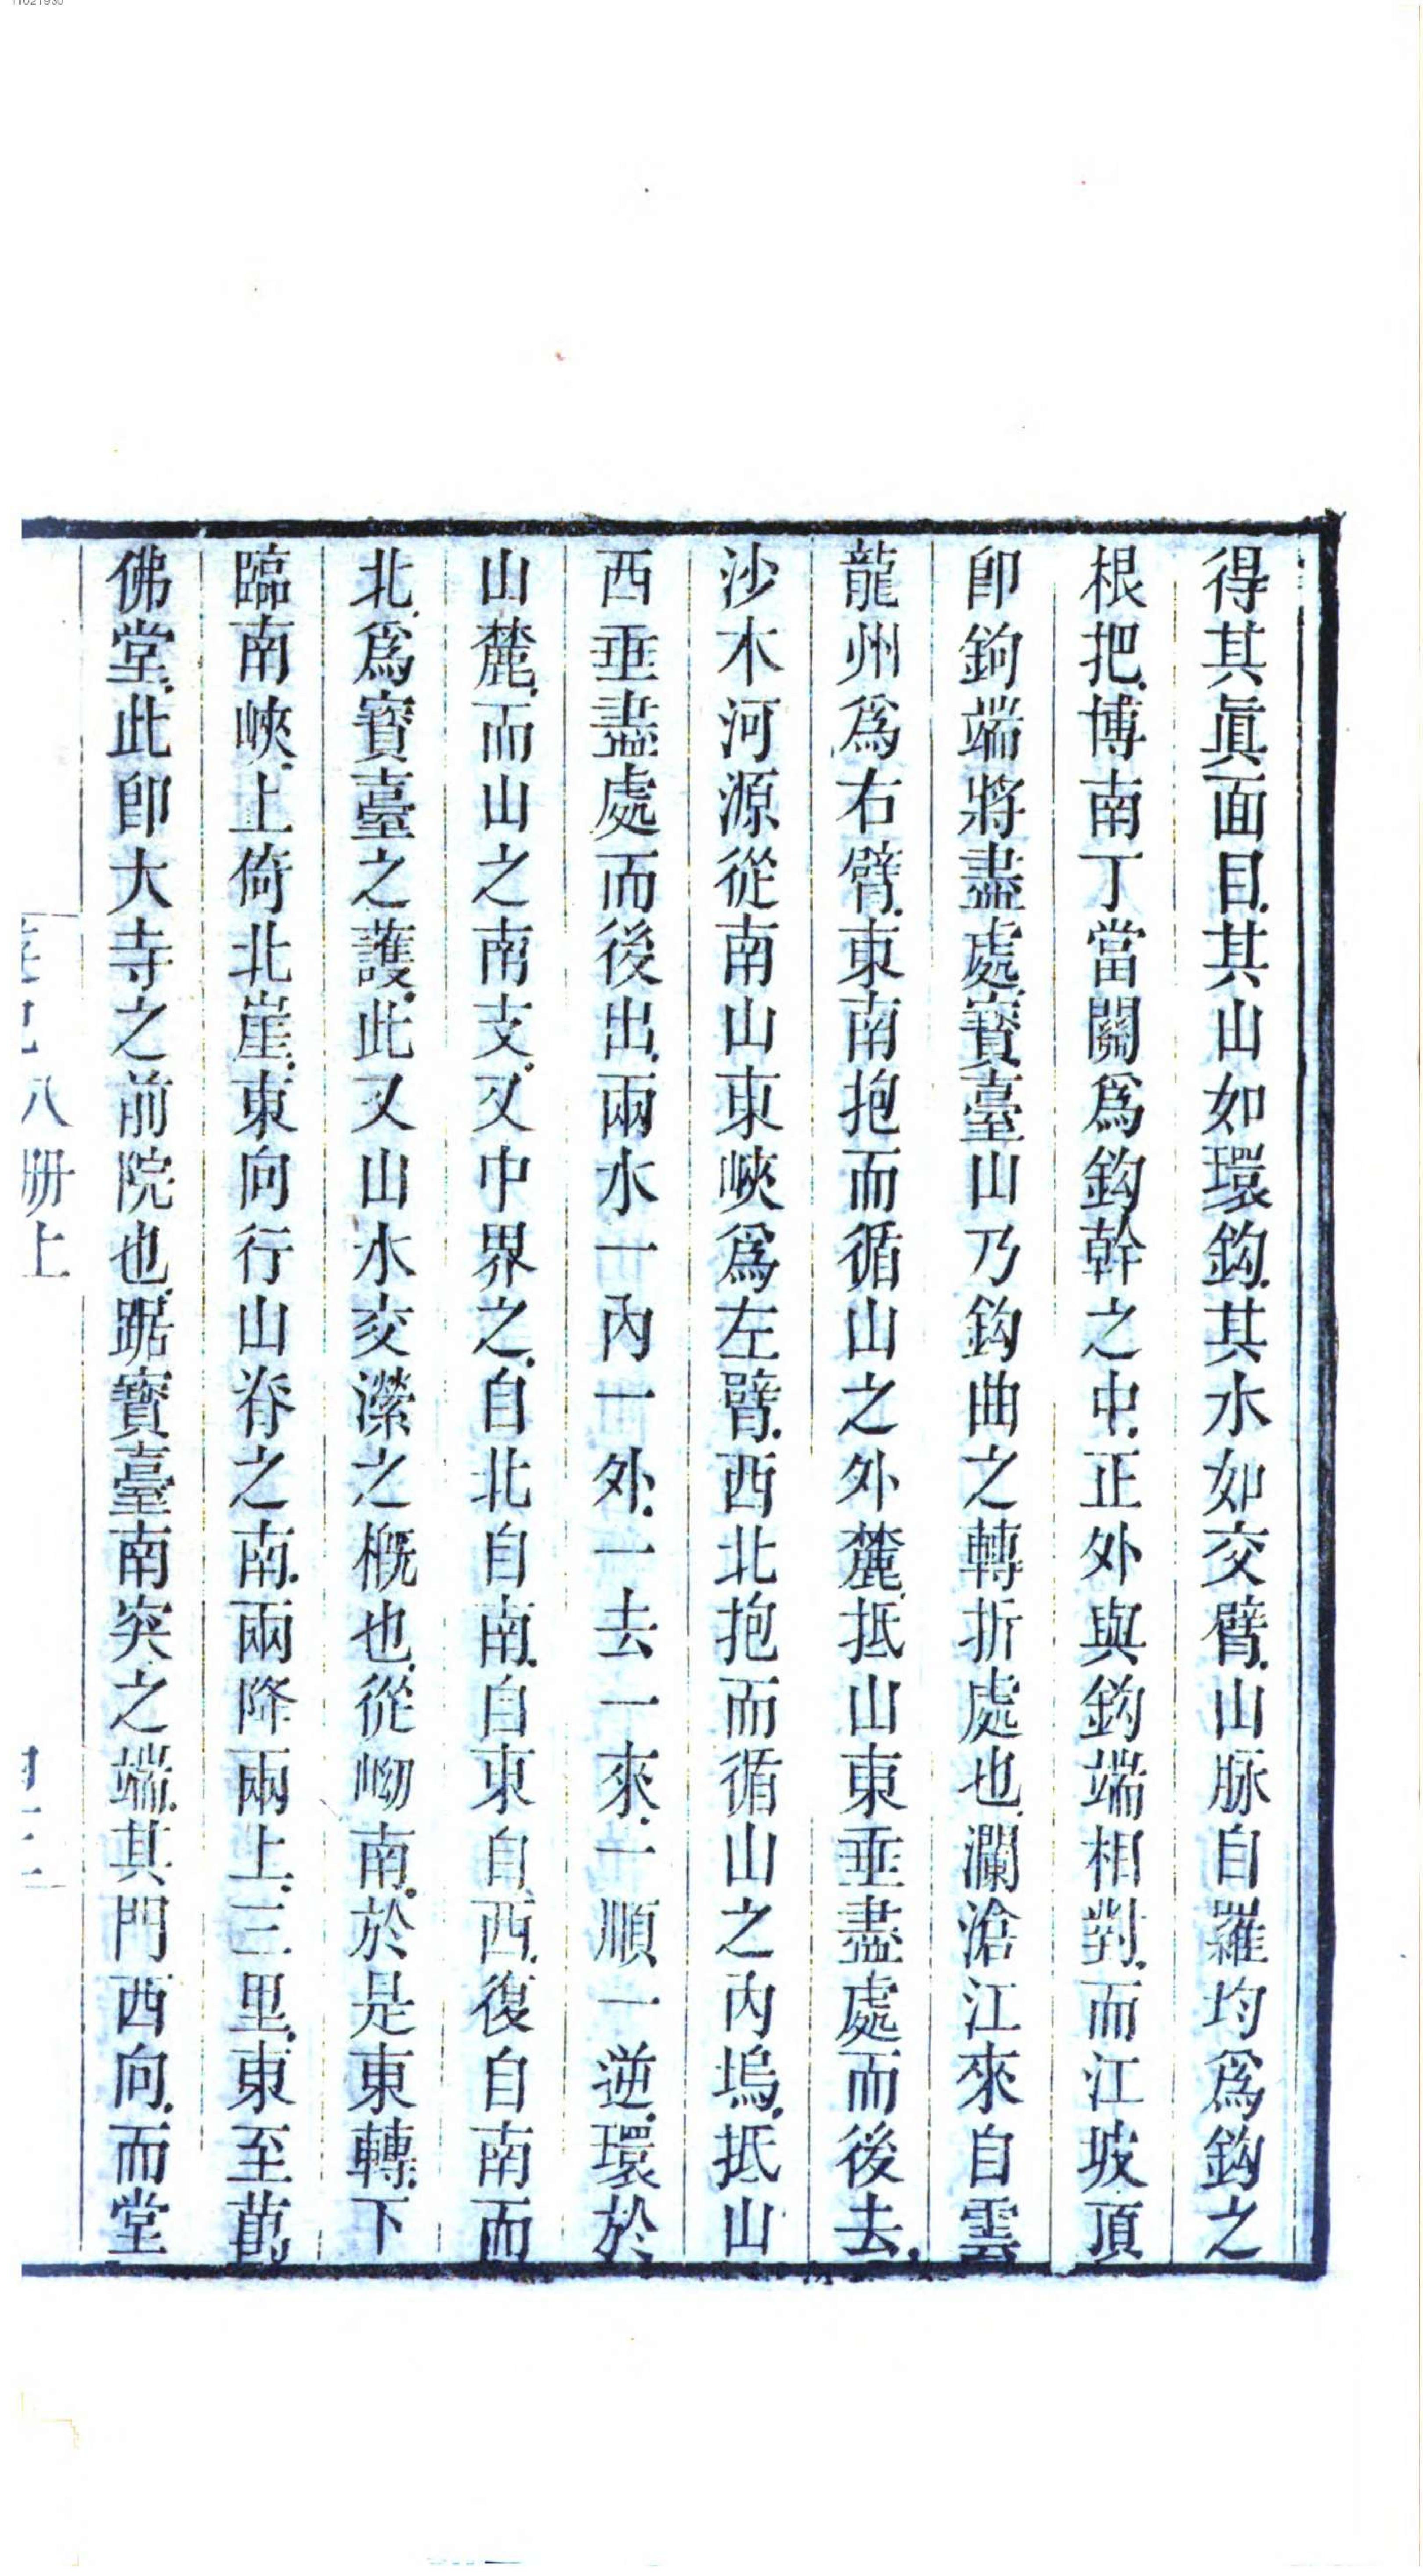 得其眞面目其山如環鈎其水如交臂山脉自羅均爲鈎之
根把博南丁當關爲鈎幹之中正外與鈎端相對而江坡頂
卽鉤端將盡處寳臺山乃鈎曲之轉折處也瀾滄江來自雲
龍州爲右臂東南抱而循山之外麓抵山東垂盡處而後去
沙木河源從南山東峽爲左臂西北抱而循山之內塢抵山
西垂盡處而後出兩水一內一外一去一來一順一逆環於
山麓而山之南支又中界之自北自南自東自西復自南而
北爲寳臺之護此又山水交瀠之槪也從峽南於是東轉下
臨南峽上倚北崖東向行山脊之南兩降兩上三里東至萬
佛堂此卽大寺之前院也踞寳臺南突之端其門西向而堂
八册上
11621930